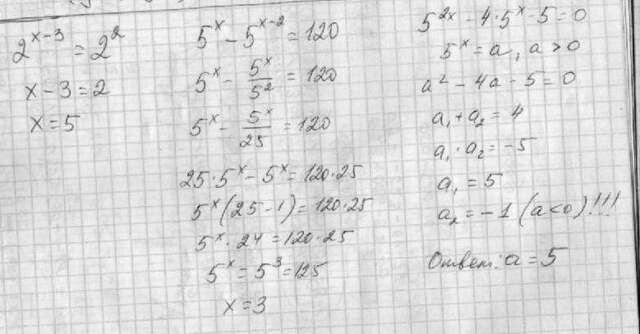 2^{x-3} = 2^2
x - 3 = 2
x = 5
5^x - 5^{x-2} = 120
5^x - \frac{5^x}{5^2} = 120
5^x - \frac{5^x}{25} = 120
25·5^x - 5^x = 120·25
5^x(25-1) = 120·25
5^x · 24 = 120·25
5^x = 5^3 = 125
x = 3
5^{2x} - 4·5^x - 5 = 0
5^x = a, a > 0
a^2 - 4a - 5 = 0
a_1 + a_2 = 4
a_1 · a_2 = -5
a_1 = 5
a_2 = -1 (a<0)!!!
Ответ: a = 5